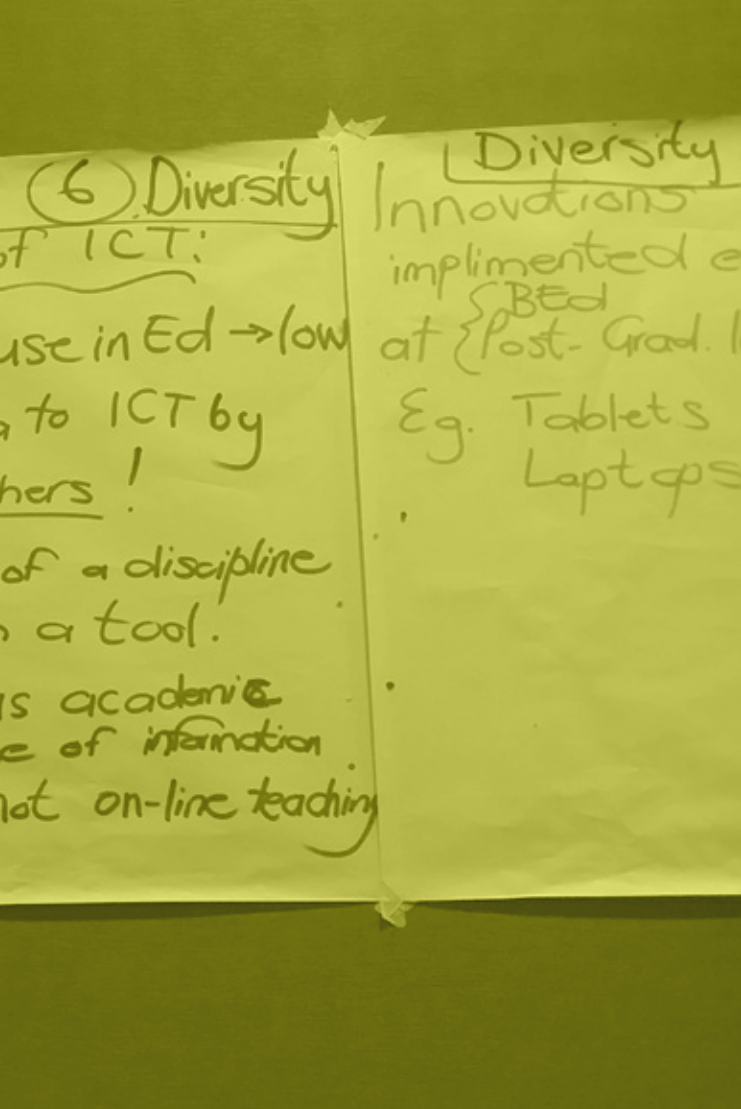 6 Diversity
of ICT:
use in Ed → low
to ICT by
hers !
of a discipline
a tool.
is academic
e of information
not on-line teaching
Diversity
Innovations
implimented e
{ BEd
at { Post- Grad.
Eg. Tablets
Laptops